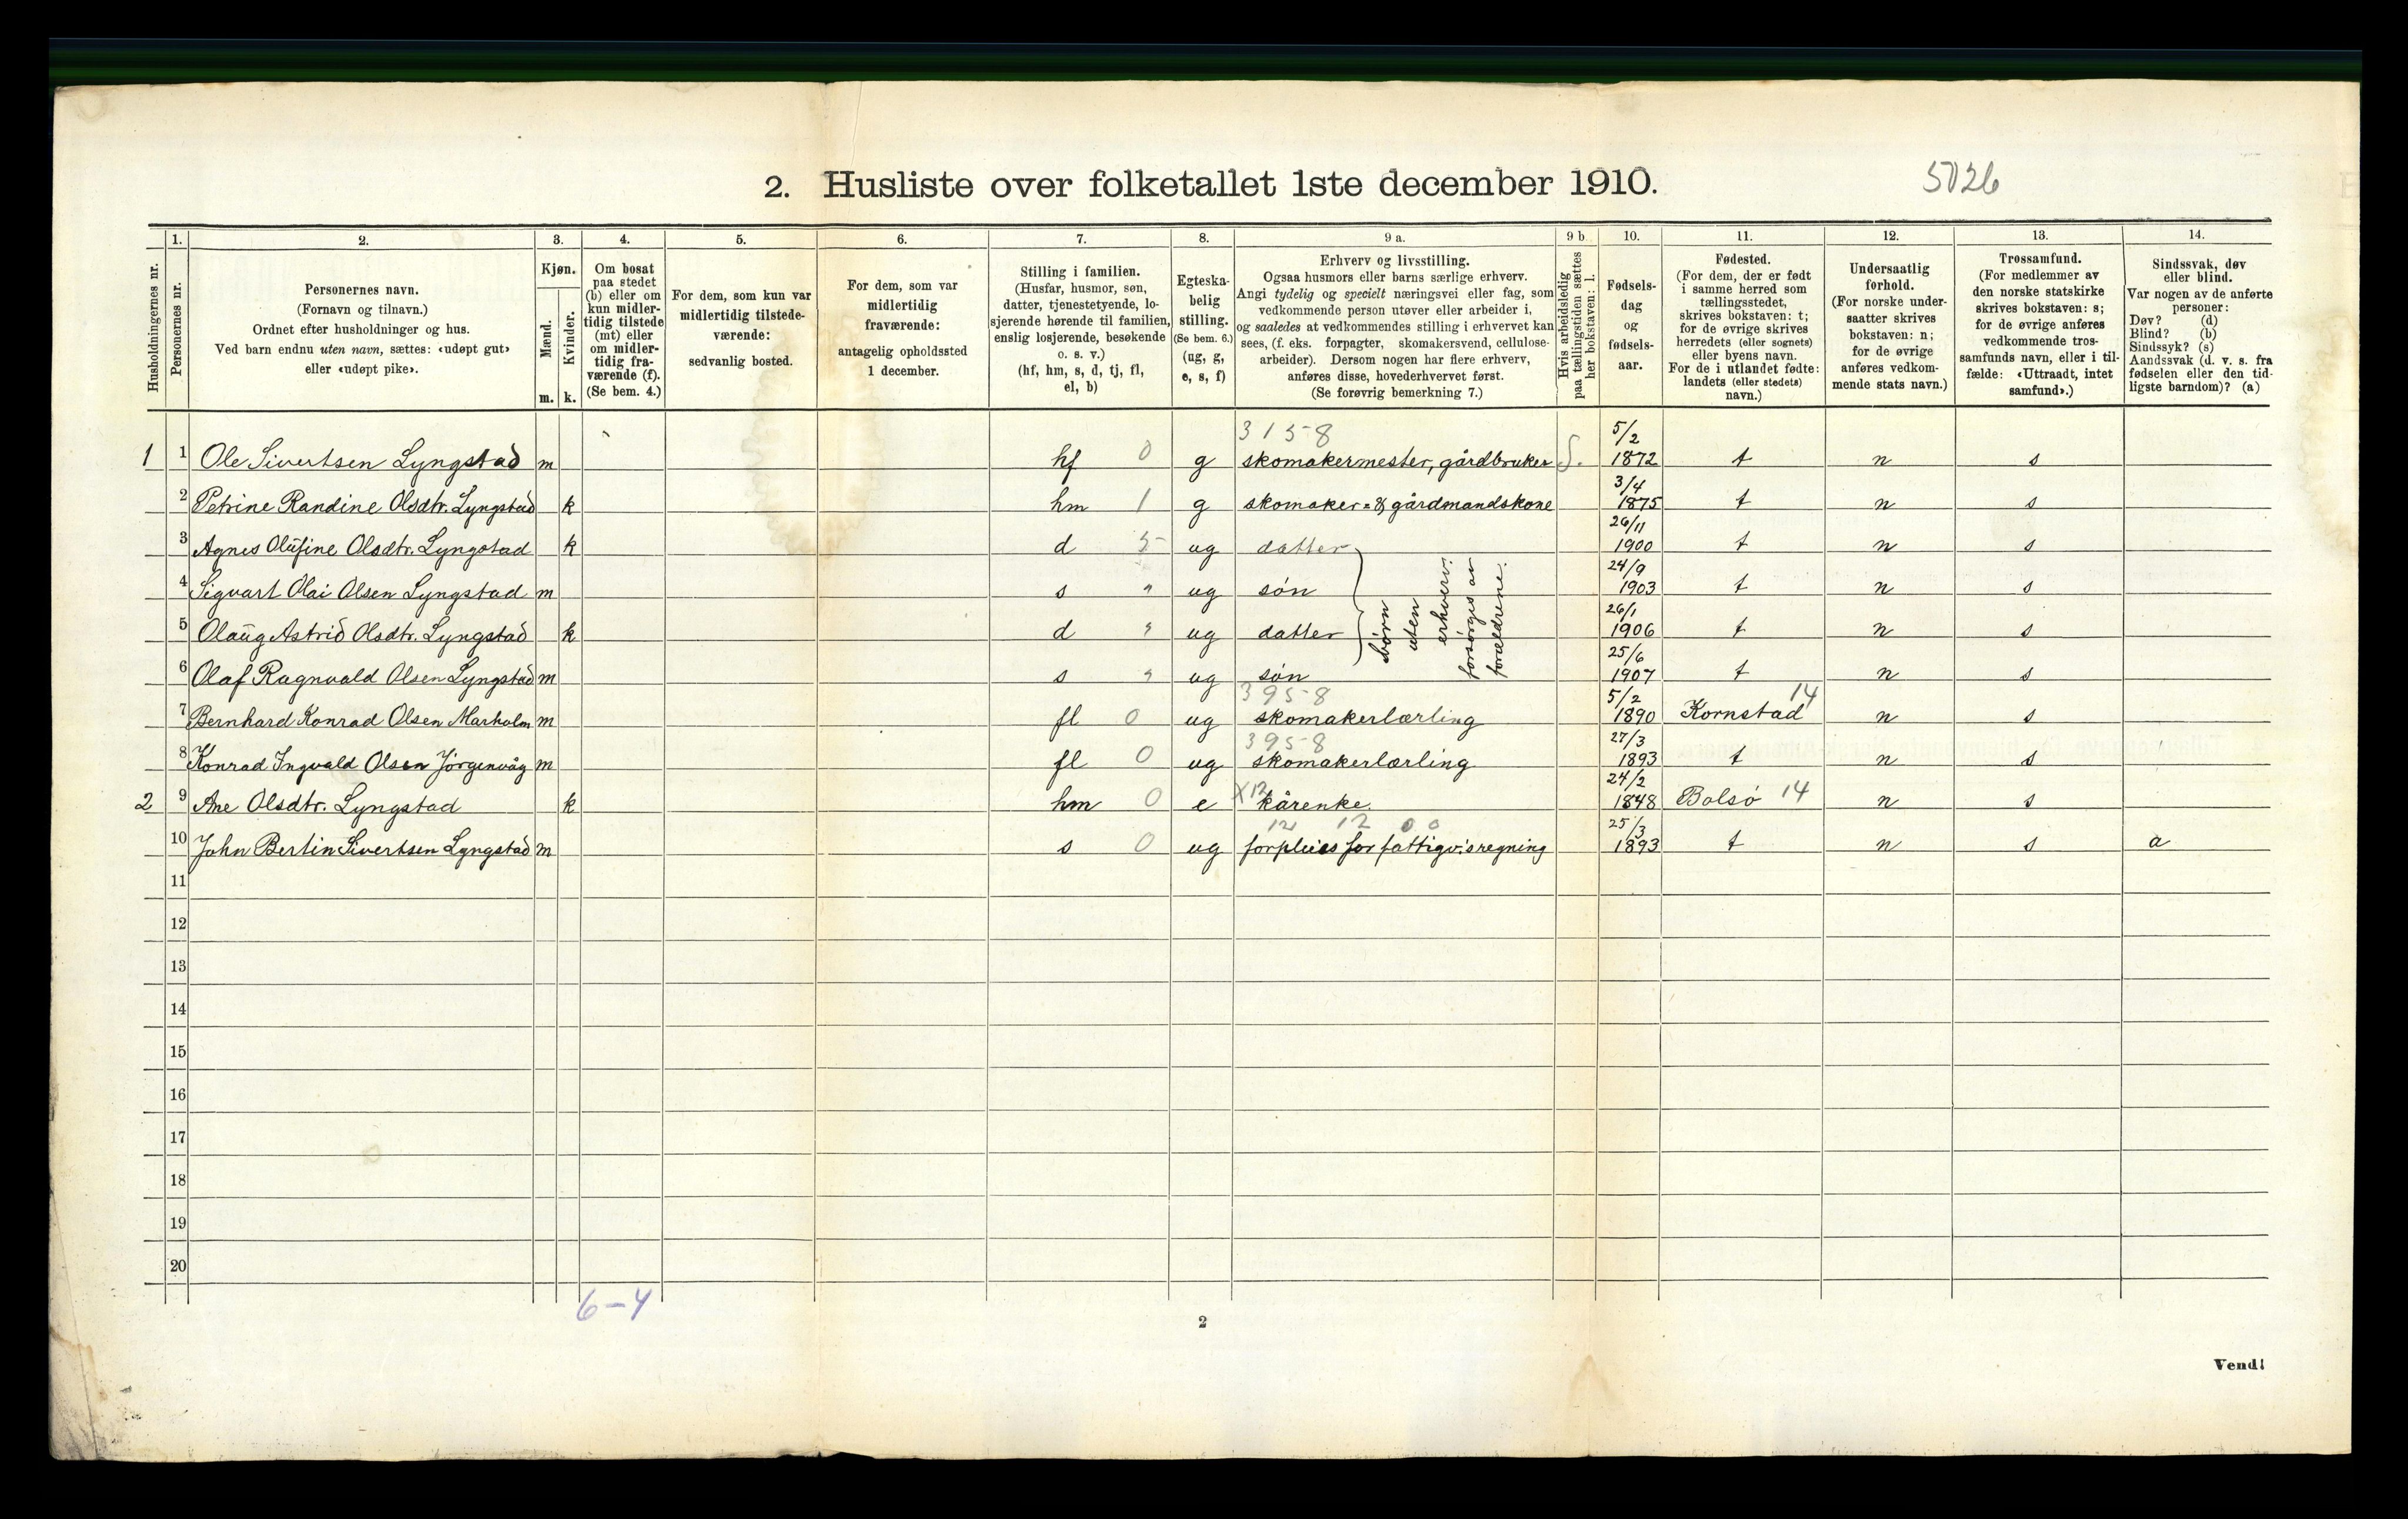 2. Husliste over folketallet 1ste december 1910.
5026
1. 2. 3. 4. 5. 6. 7. 8. 9 a. 9 b 10. 11. 12. 13. 14.
Husholdningernes nr.
Personernes nr.
Personernes navn.
(Fornavn og tilnavn.)
Ordnet efter husholdninger og hus.
Ved barn endnu uten navn, sættes: «udøpt gut»
eller «udøpt pike».
Kjøn.
Mænd.
Kvinder.
m. k.
Om bosat
paa stedet
(b) eller om
kun midler-
tidig tilstede
(mt) eller
om midler-
tidig fra-
værende (f).
(Se bem. 4.)
For dem, som kun var
midlertidig tilstede-
værende:
sedvanlig bosted.
For dem, som var
midlertidig
fraværende:
antagelig opholdssted
1 december.
Stilling i familien.
(Husfar, husmor, søn,
datter, tjenestetyende, lo-
sjerende hørende til familien,
enslig losjerende, besøkende
o. s. v.)
(hf, hm, s, d, tj, fl,
el, b)
Egteska-
belig
stilling.
(Se bem. 6.)
(ug, g,
e, s, f)
Erhverv og livsstilling.
Ogsaa husmors eller barns særlige erhverv.
Angi tydelig og specielt næringsvei eller fag, som
vedkommende person utøver eller arbeider i,
og saaledes at vedkommendes stilling i erhvervet kan
sees, (f. eks. forpagter, skomakersvend, cellulose-
arbeider). Dersom nogen har flere erhverv,
anføres disse, hovederhvervet først.
(Se forøvrig bemerkning 7.)
Hvis arbeidsledig
paa tællingstiden sættes
her bokstaven: l.
Fødsels-
dag
og
fødsels-
aar.
Fødested.
(For dem, der er født
i samme herred som
tællingsstedet,
skrives bokstaven: t;
for de øvrige skrives
herredets (eller sognets)
eller byens navn.
For de i utlandet fødte:
landets (eller stedets)
navn.)
Undersaatlig
forhold.
(For norske under-
saatter skrives
bokstaven: n;
for de øvrige
anføres vedkom-
mende stats navn.)
Trossamfund.
(For medlemmer av
den norske statskirke
skrives bokstaven: s;
for de øvrige anføres
vedkommende tros-
samfunds navn, eller i til-
fælde: «Uttraadt, intet
samfund».)
Sindssvak, døv
eller blind.
Var nogen av de anførte
personer:
Døv? (d)
Blind? (b)
Sindssyk? (s)
Aandssvak (d. v. s. fra
fødselen eller den tid-
ligste barndom)? (a)
3 1 5 8
1 1 Ole Sivertsen Lyngstad m hf 0 g skomakermester, gårdbruker S. 5/2 1872 t n s
2 Petrine Randine Olsdtr. Lyngstad k hm 1 g skomaker= & gårdmandskone 3/4 1875 t n s
3 Agnes Olufine Olsdtr. Lyngstad k d 5 ug datter 26/11 1900 t n s
4 Sigvart Olai Olsen Lyngstad m s " ug søn 24/9 1903 t n s
5 Olaug Astrid Olsdtr. Lyngstad k d " ug datter 26/1 1906 t n s
6 Olaf Ragnvald Olsen Lyngstad m s " ug søn 25/6 1907 t n s
børn
uten
erhverv.
forsørges av
forældrene.
3 9 5 8
7 Bernhard Konrad Olsen Marholm m fl 0 ug skomakerlærling 5/2 1890 Kornstad 14 n s
3 9 5 8
8 Konrad Ingvald Olsen Jørgenvåg m fl 0 ug skomakerlærling 27/3 1893 t n s
2 9 Ane Olsdtr. Lyngstad k hm 0 e X12 kårenke. 24/2 1848 Bolsø 14 n s
12 12 0 0
10 John Bertin Sivertsen Lyngstad m s 0 ug forpleies for fattigv.s regning 25/3 1893 t n s a
11
12
13
14
15
16
17
18
19
20
6-4
2
Vend!